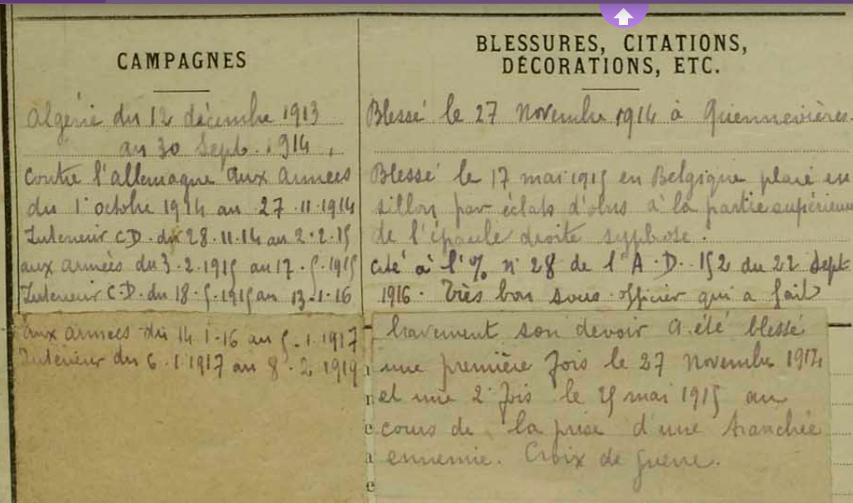 CAMPAGNES
Algérie du 12 décembre 1913
au 30 Sept. 1914,
Contre l'allemagne aux armees
du 1 octobre 1914 au 27-11-1914
Interieur C D. du 28-11-14 au 2-2-15
aux armées du 3-2-1915 au 17-5-1915
Interieur C-D. du 18-5-1915 au 13-1-16
aux armees du 14 1-16 au 5-1.1917
Interieur du 6.1.1917 au 8.2 1919
BLESSURES, CITATIONS,
DÉCORATIONS, ETC.
Blessé le 27 Novembre 1914 à Quennevières.
Blessé le 17 mai 1915 en Belgique plaie en
sillon par éclats d'obus à la partie supérieure
de l'épaule droite
Cité à l'O/ n° 28 de l'A-D-152 du 22 Sept
1916. Très bon sous-officier qui a fait
bravement son devoir a été blessé
une première fois le 27 Novembre 1914
et une 2e fois le mai 1915 au
cours de la prise d'une tranchée
ennemie. Croix de Guerre.